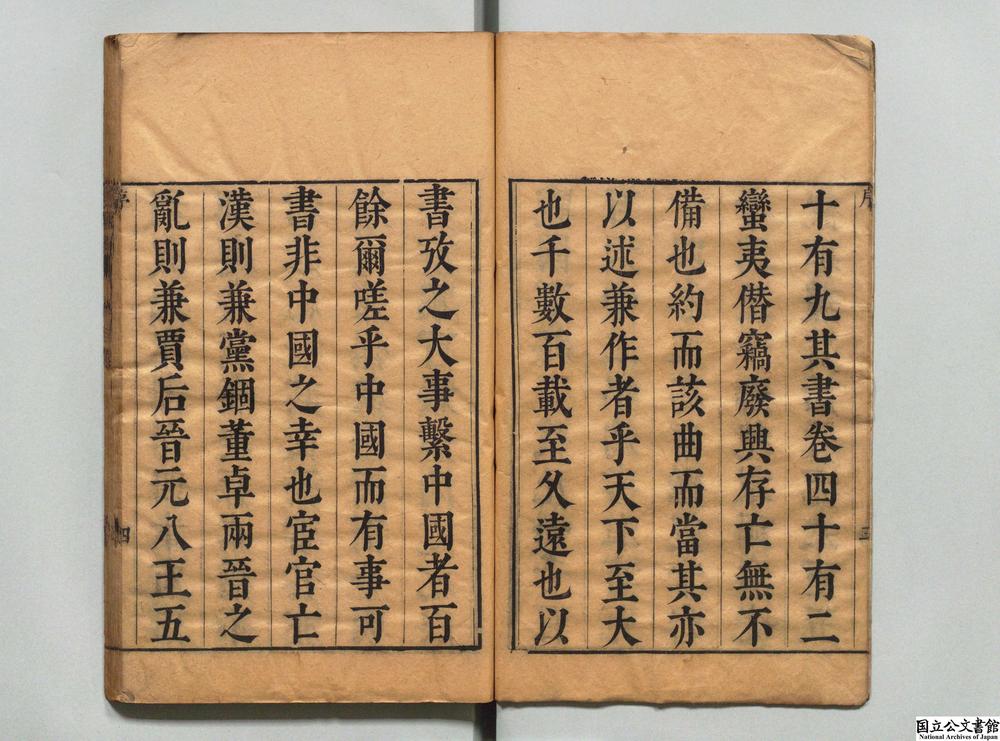 十有九其書卷四十有二
蠻夷僭竊廢興存亡無不
備也約而該曲而當其亦
以述兼作者乎天下至大
也千數百載至久遠也以
書攷之大事繫中國者百
餘爾嗟乎中國而有事可
書非中國之幸也宦官亡
漢則兼黨錮董卓兩晉之
亂則兼賈后晉元八王五
四
国立公文書館
National Archives of Japan